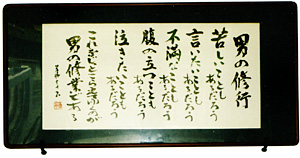 男の修行
苦しいこともあるだろう
言いたいこともあるだろう
不満なこともあるだろう
腹の立つこともあるだろう
泣きたいこともあるだろう
これらをじっと
男の修業である